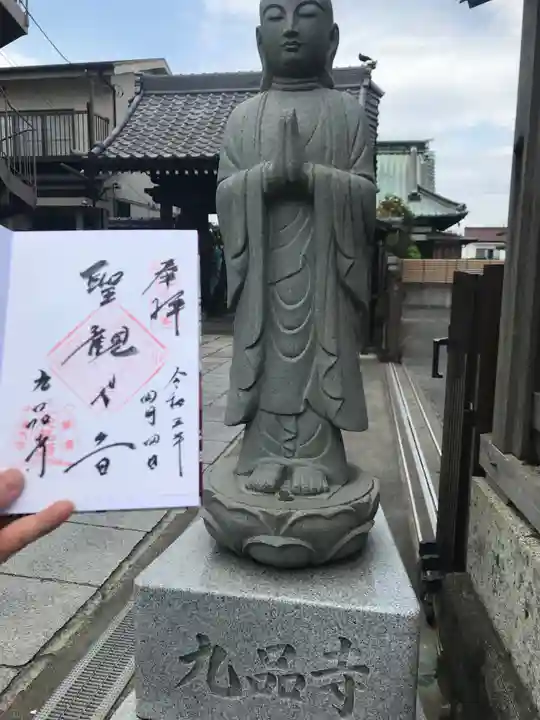 奉拝
令和五年
四月四日
聖観世音
九品寺
九品寺